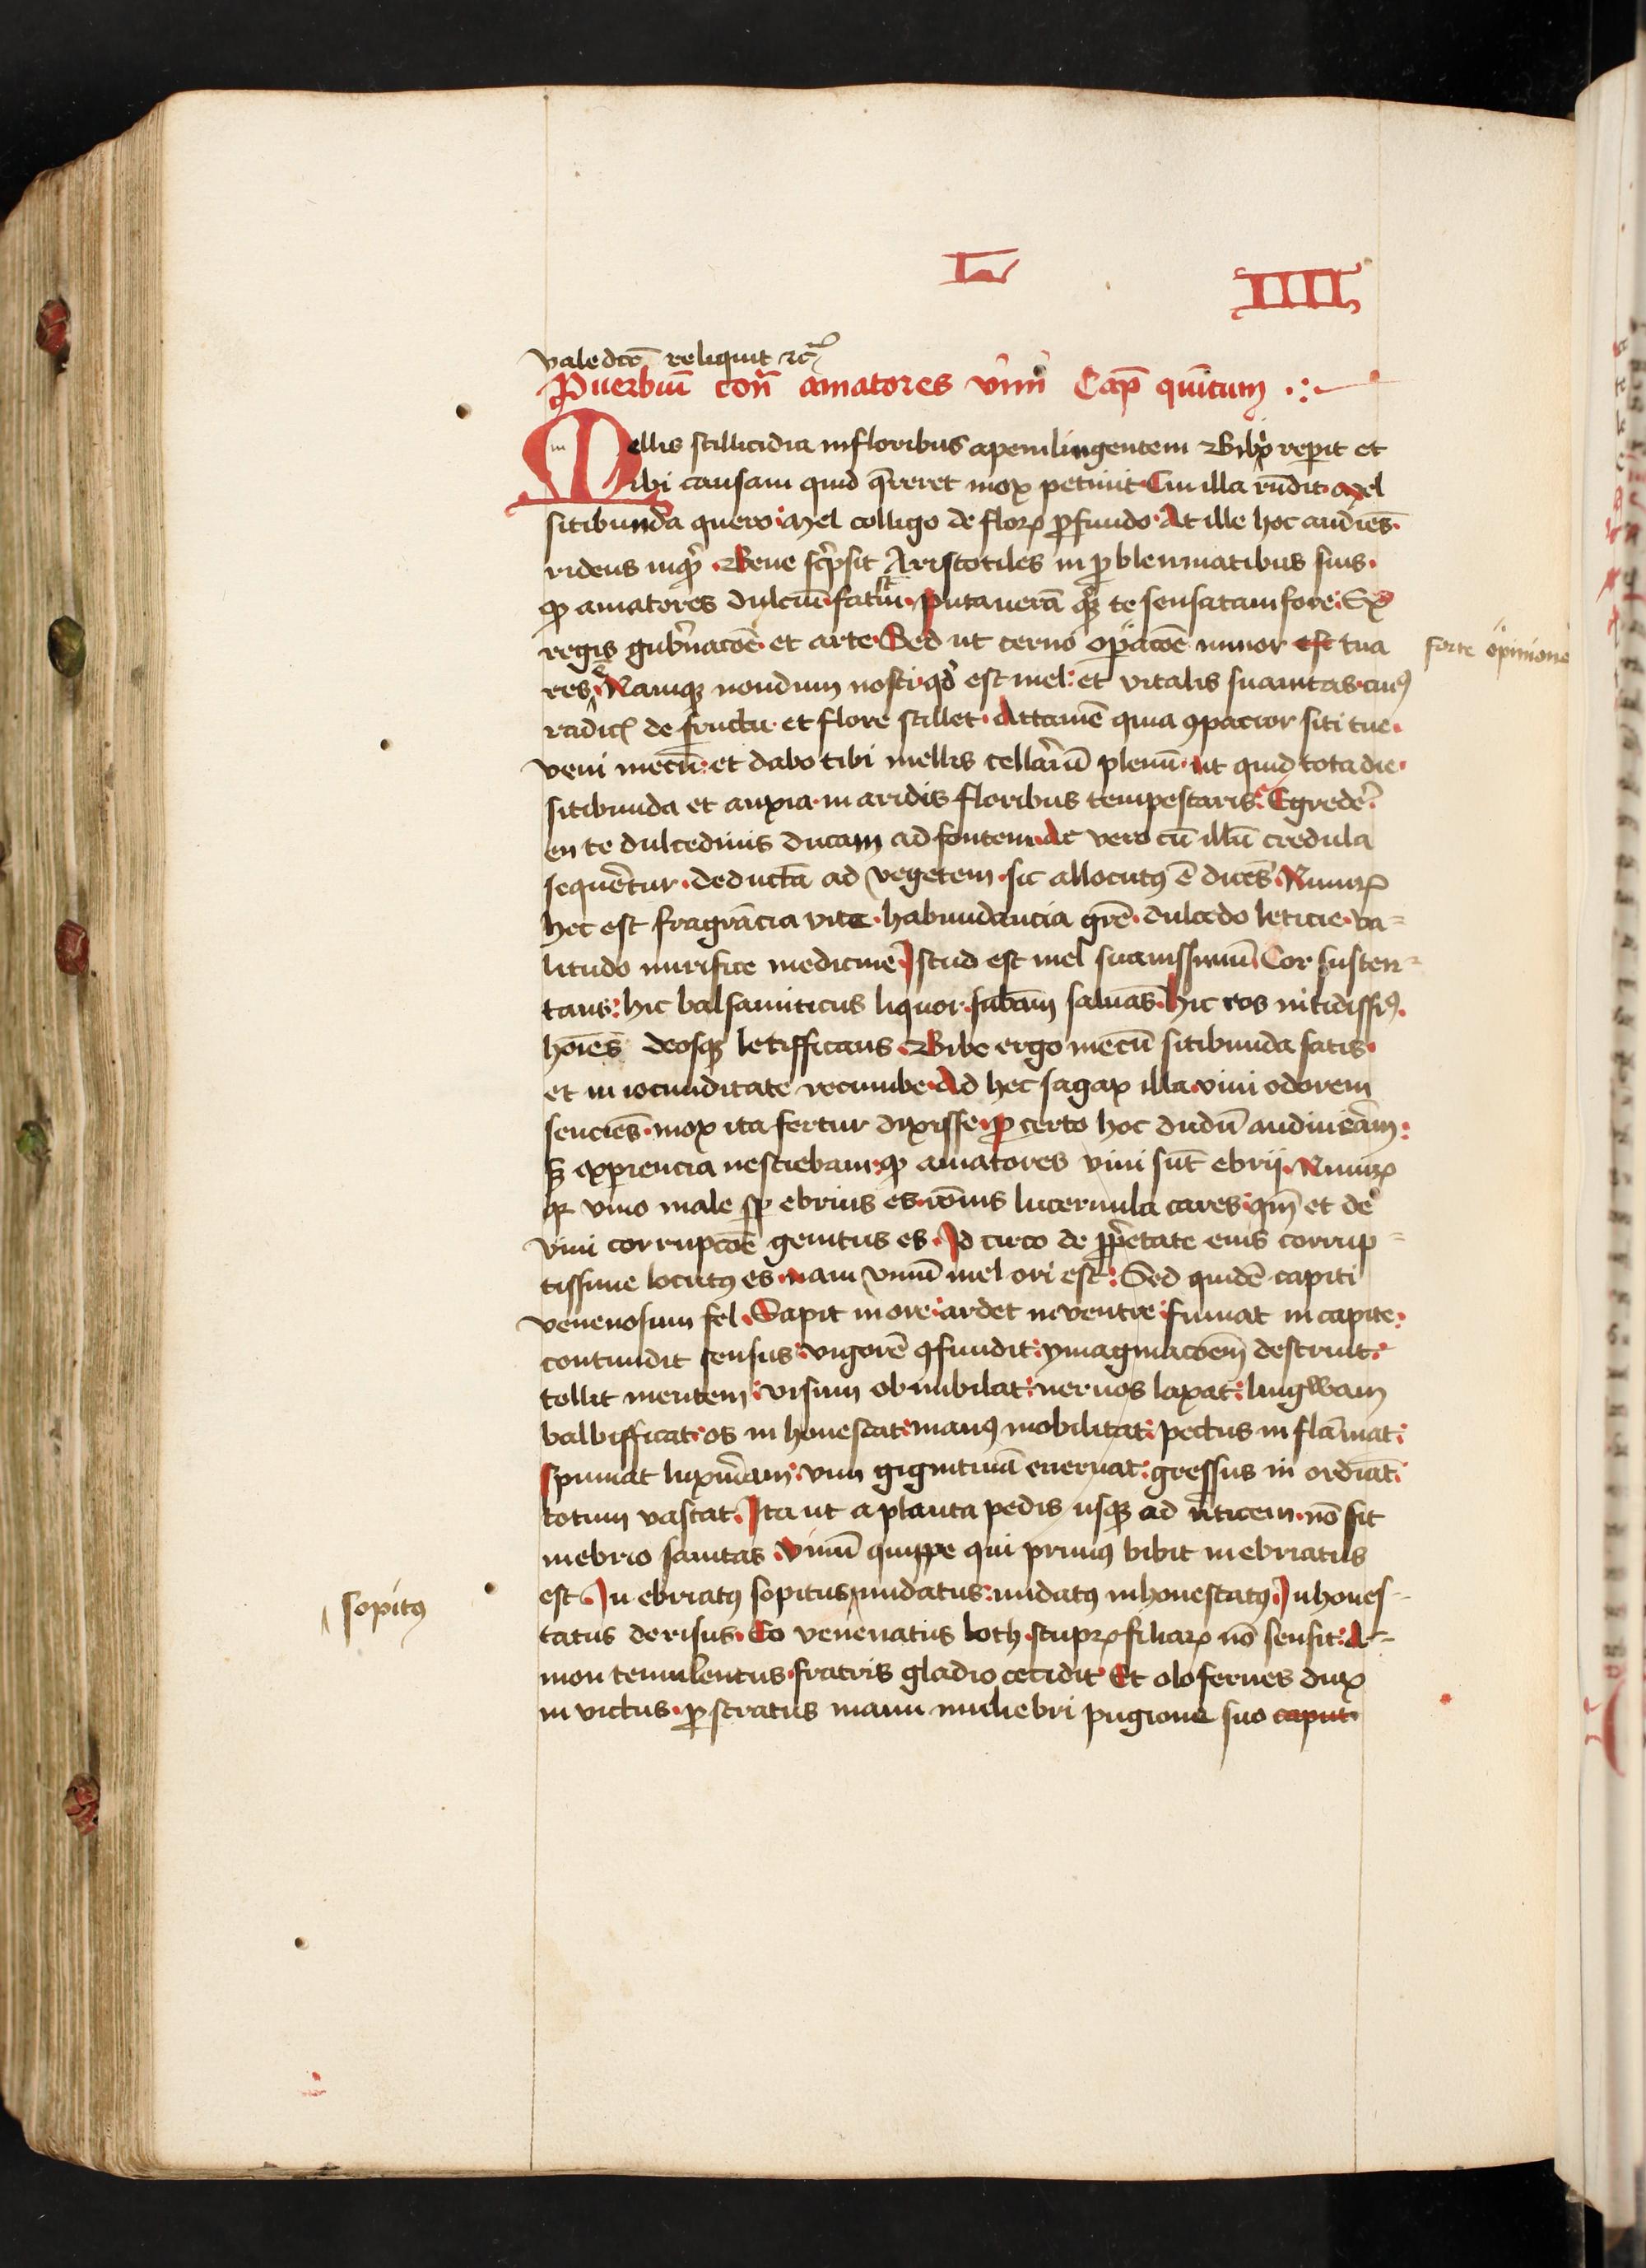 L
IIII
valedcō reliquit ⁊c̄
Puerbiū cont̄ amatores vini Cap̄ quītum
Mellis stillicidia in floribus apem lingentem Bibo reperit et
ibi causam quid q̄reret mox petiuit Cui illa rn̄dit mel
sitibunda quero mel colligo de florꝝ ꝓfundo At ille hoc audiēs
ridens inqͥt Bene scͥpsit Aristotiles in ꝓblemmatibus suis
ꝙ amatores dulciū fatui st̄ putauerā qͥdē te sensatam fore
regis gubn̄acōe et arte Sed ut cerno opīacōe minor est tua
forte opinione
res Namqꝫ nondum nosti qd̓ est mel et vitalis suauitas cuiꝰ
radicꝭ de fructu et flore stillet Attamē quia ꝯpacior siti tue
veni mecū et dabo tibi mellis cellariū plenū ut quid tota die
sitibunda et anxia in aridis floribus tempestaris Egrede͛
en te dulcedinis ducam ad fontem At vero cū illū credula
sequēretur deducta ad vegetem sic allocutꝰ ē dicēs Nimirꝝ
hec est fragrācia vite habundancia grē dulcedo leticie va=
litudo mirifice medicine Istud est mel suauissimū Cor susten=
tans hic balsamiticus liquor subām saluās hic ros nitidissiꝰ
hoīes deosqꝫ letifficans Bibe ergo mecū sitibunda satis
et in iocunditate recumbe Ad hec sagax illa vini odorem
senciēs mox ita fertur dixisse ꝓ certo hoc dudū audiuerām
sꝫ expiencia nesciebam ꝙ amatores vini sūt ebrij Nimirꝝ
qꝛ vino male sp̄ ebrius es rōnis lucernula cares qm̄ et de
vini corrupcōe genitus es Id circo de ꝓprietate eius corrup=
tissime locutꝰ es nam vinū mel ori est Sed quidē capiti
venenosum fel Sapit in ore ardet in ventre fumat in capite
contundit sensus vigorē ꝯfundit ymaginacōem̄ destruit
tollit mentem visum obnubilat neruos laxat lingwam
balbifficat os in honestat manꝰ mobilitat pectus in flāmat
spumat luxuriam vim gignitiuā eneruat gressus in ordīat
totum vastat Ita ut a planta pedis usqꝫ ad v̄ticem nō sit
in ebrio sanitas Vinū quippe qui primꝰ bibit inebriatus
est In ebriatꝰ sopitus nudatus nudatꝰ inhonestatꝰ In hones-
sopitꝰ
tatus derisus Eo venenatus loth stuprꝝ filiarꝝ nō sensit A=
mon temulentus fratris gladio cecidit Et olofernes dux
in victus ꝓstratus manu muliebri pugione suo caput